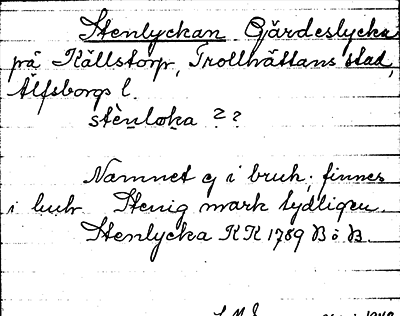 Stenlyckan Gärdeslycka
på Källstorp, Trollhättans stad,
Älfsborgs l.
stènloka ??
Namnet ej i bruk; finnes
i lutr. Stenig mark tydligen.
Stenlycka KK 1789 B ö B.